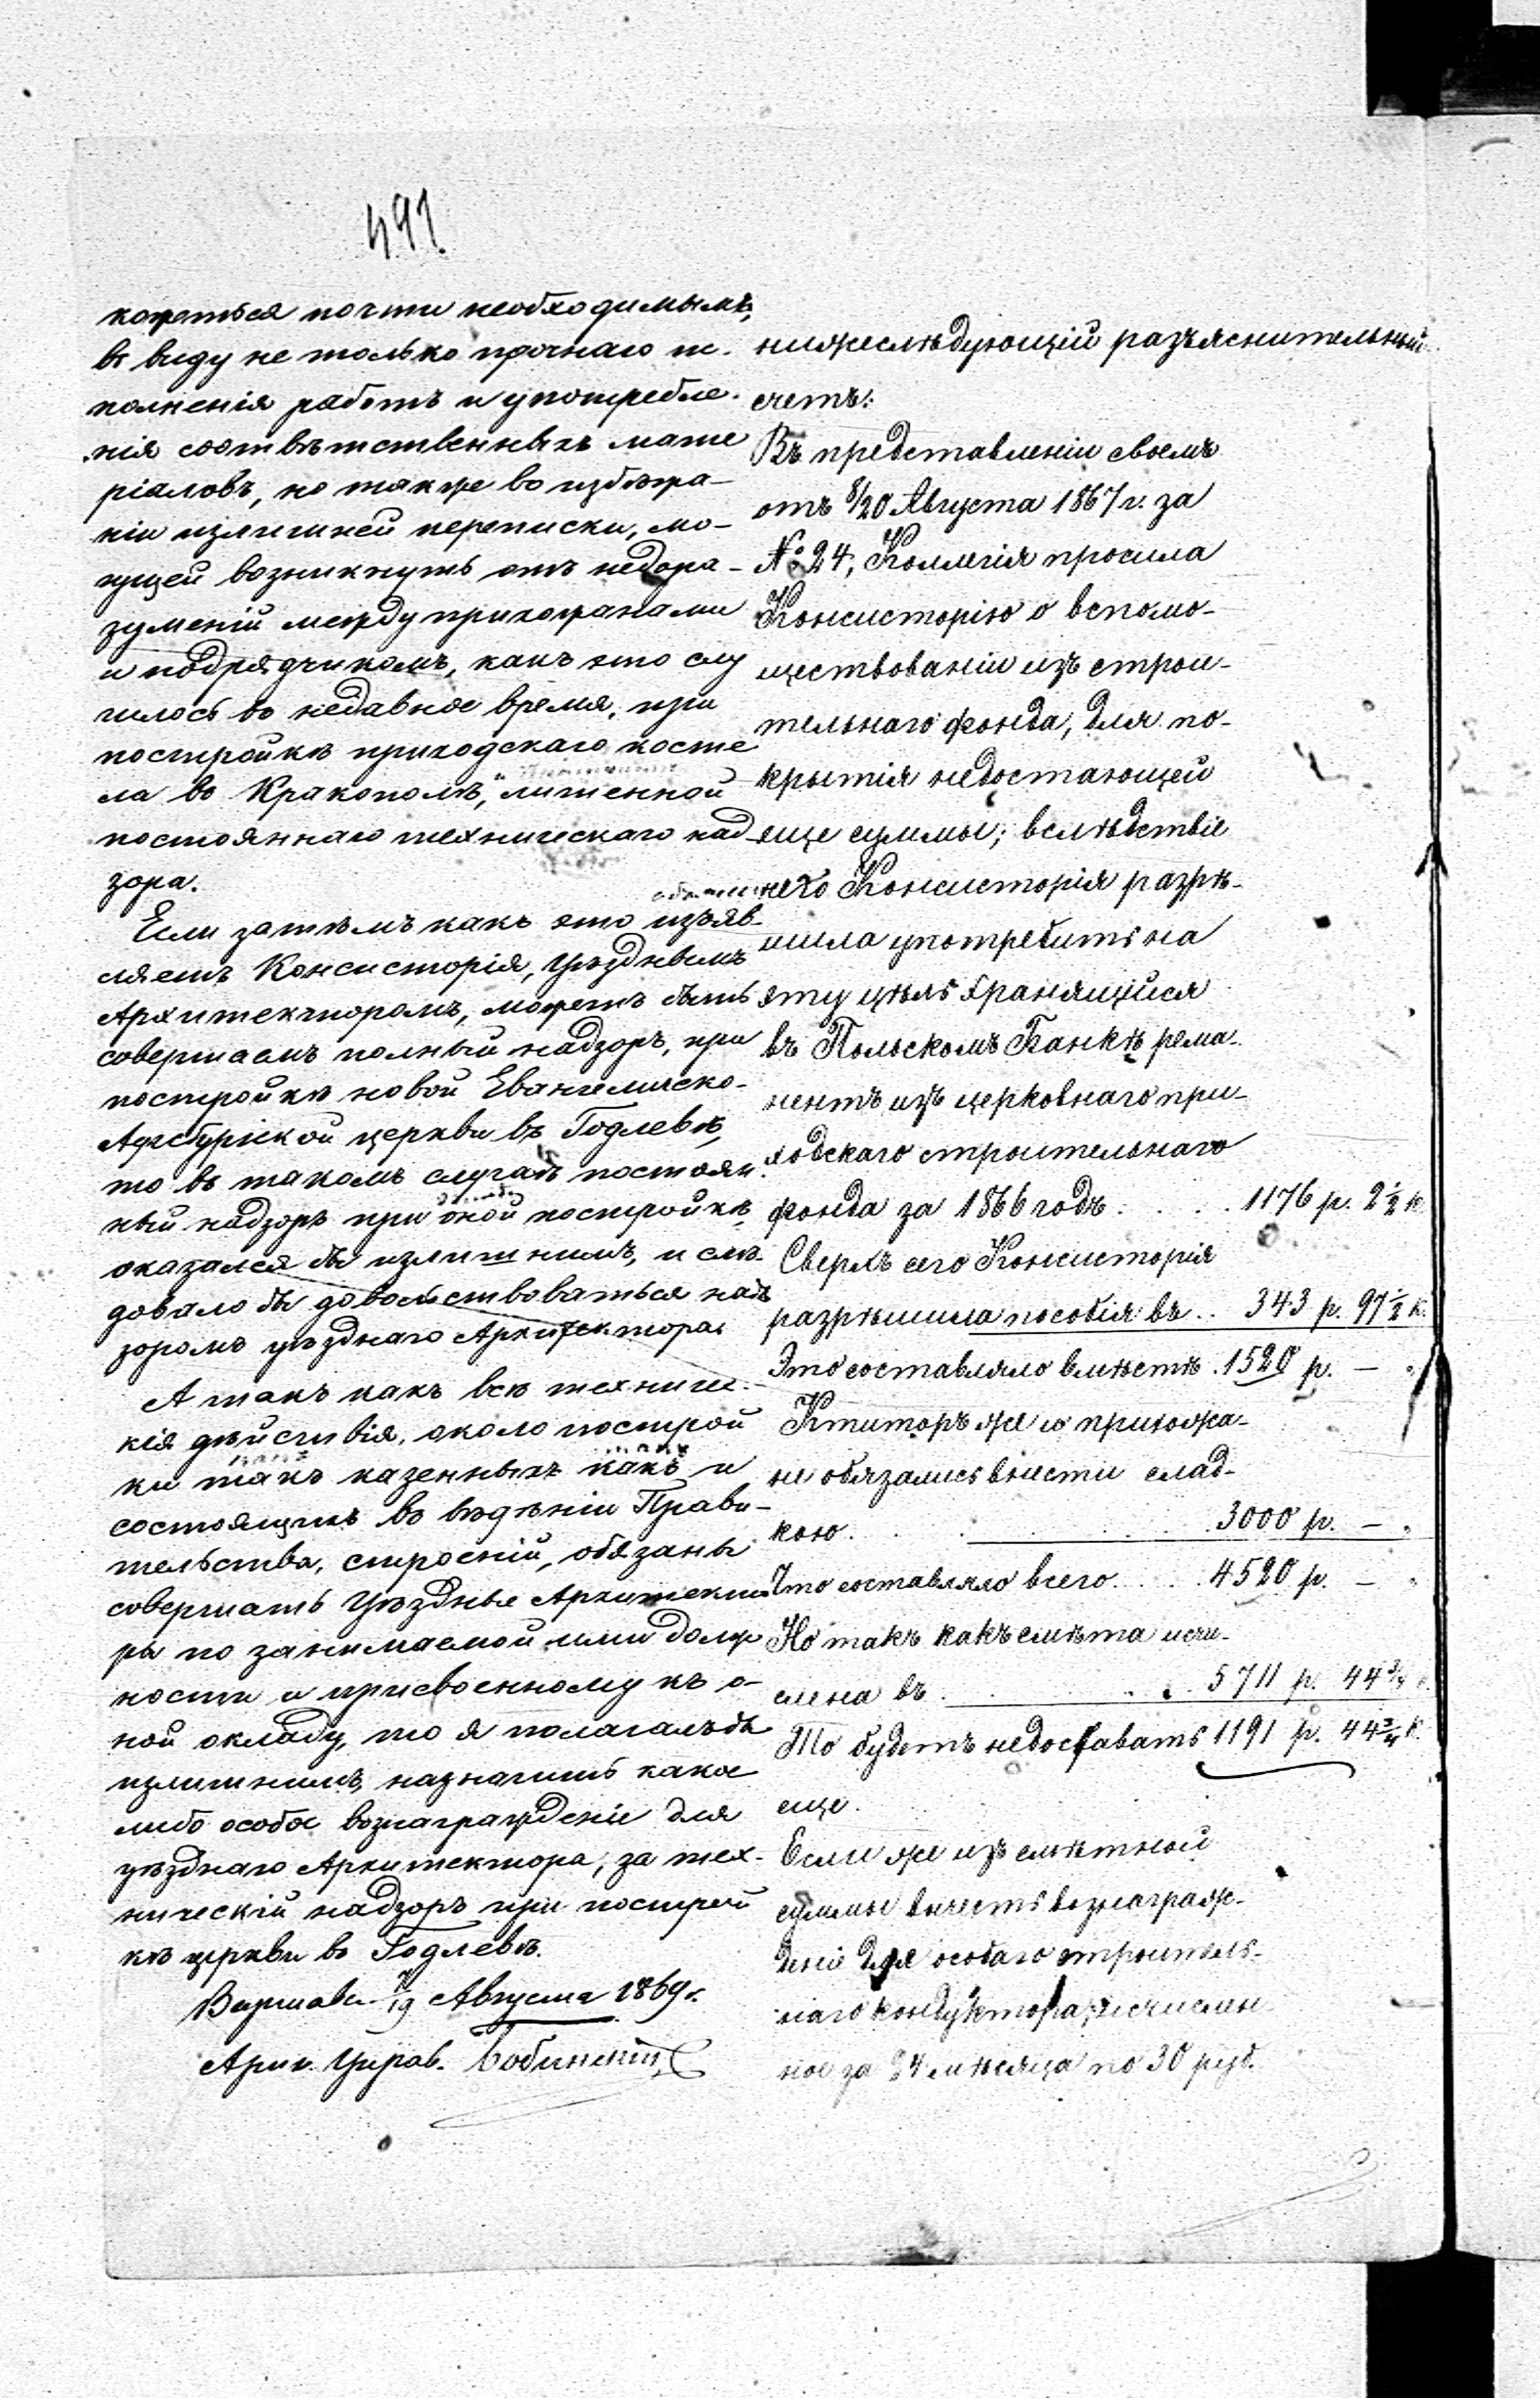 491.
кажеться почти необходимымъ,
въ виду не только прочнаго ис-
полненія работъ и употребле-
нія соотвѣтственныхъ мате
ріаловъ, но также во избѣжа-
ніи излишней переписки, мо-
гущей возникнуть отъ недора-
зуменій между прихожанами
и подрядчикомъ, какъ это слу
чилось во недавное время, при
постройкѣ приходскаго косте
ла во Кракополѣ, лишенной
постояннаго техническаго над
зора.
Если затѣмъ какъ это изъяв-
ляетъ Консисторія, Уѣзднымъ
Архитекторомъ, можетъ быть
совершаемъ полный надзоръ, при
постройкѣ новой Евангелическо-
Аугсбургской церкви въ Годлевѣ,
то въ такомъ случаѣ постоян
ный надзоръ при оной постройкѣ,
оказался бы излишнимъ, и слѣ-
довало бы довольствоваться над
зоромъ уѣзднаго Архитектора.
А такъ какъ всѣ техниче-
кія дѣйствія, около построй
ки такъ казенныхъ какъ и
состоящихъ въ вѣдѣніи Прави-
тельства, строеній, обязаны
совершать Уѣздные Архитекто
ры по занимаемой ими долж
ности и присвоенному къ о-
ной окладу, то я полагалъ бы
излишнимъ, назначить какое
либо особое вознагражденіе для
уѣзднаго Архитектора, за тех-
ническій надзоръ при построй
кѣ церкви во Годлевѣ.
Варшава 19 Августа 1869 г.
Архи. Управ.
нижеслѣдующій разъяснительный
счетъ:
Въ представленіи своемъ
отъ 8/20 Августа 1867 г. за
№ 24, Коллегія просила
Консисторію о вспомо-
ществованіи изъ строи-
тельнаго фонда, для по-
крытія недостающей
еще суммы; вслѣдствіе
чего Консисторія разрѣ-
шила употребить на
эту цѣль хранящійся
въ Польскомъ Банкѣ рема-
нентъ изъ церковнаго при-
ходскаго строительнаго
фонда за 1866 годъ . . . . 1176 р. 2 1/2 к.
Сверхъ сего Консисторія
разрѣшила пособія въ .. 343 р. 97 1/2 к.
Это составляло вмѣстѣ . 1520 р. — "
Ктиторъ же и прихожа-
не обязались внести склад-
кою . . . . . 3000 р. — "
Что составляло всего . . . . 4520 р. — "
Но такъ какъ смѣта исчи-
слена въ . . . . 5711 р. 44 3/4 к.
То будетъ недоставать 1191 р. 44 3/4 к.
еще.
Если же изъ смѣтной
суммы вычесть вознаграж-
деніе для особаго строитель-
наго кондуктора, исчислен
ное за 24 мѣсяца по 30 руб.